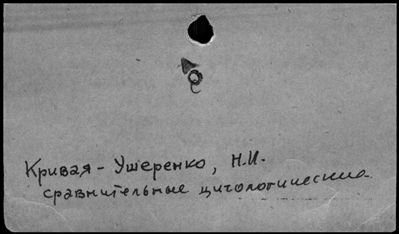 Кривая - Ушеренко, Н.И.
сравнительные цитологические